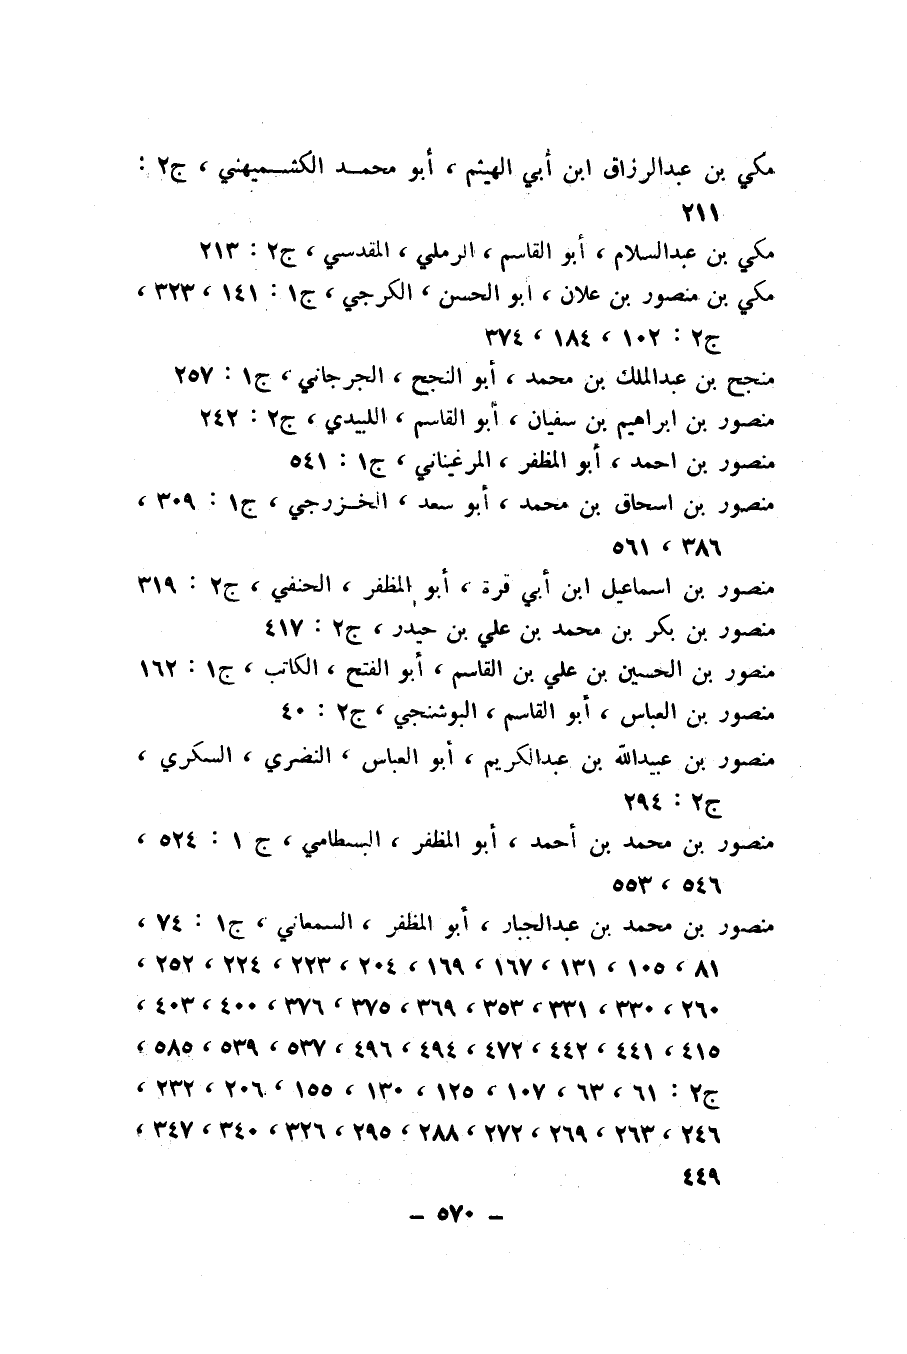 مكي بن عبدالرزاق ابن أبي الهيثم ، أبو محمد الكشميهني ، ج٢ :
٢١١
مكي بن عبدالسلام ، أبو القاسم ، الرملي ، المقدسي ، ج٢ : ٢١٣
مكي بن منصور بن علان ، ابو الحسن ، الكرجي ، ج١ : ١٤١ ، ٣٢٣ ،
ج٢ : ١٠٢ ، ١٨٤ ، ٣٧٤
منجح بن عبدالملك بن محمد ، أبو النجح ، الجرجاني ، ج١ : ٢٥٧
منصور بن ابراهيم بن سفيان ، أبو القاسم ، اللبيدي ، ج٢ : ٢٤٢
منصور بن احمد ، أبو المظفر ، المرغيناني ، ج١ : ٥٤١
منصور بن اسحاق بن محمد ، أبو سعد ، الخزرجي ، ج١ : ٣٠٩ ،
٣٨٦ ، ٥٦١
منصور بن اسماعيل ابن أبي قرة ، أبو المظفر ، الحنفي ، ج٢ : ٣١٩
منصور بن بكر بن محمد بن علي بن حيدر ، ج٢ : ٤١٧
منصور بن الحسين بن علي بن القاسم ، أبو الفتح ، الكاتب ، ج١ : ١٦٢
منصور بن العباس ، أبو القاسم ، البوشنجي ، ج٢ : ٤٠
منصور بن عبيدالله بن عبدالكريم ، أبو العباس ، النضري ، السكري ،
ج٢ : ٢٩٤
منصور بن محمد بن أحمد ، أبو المظفر ، البسطامي ، ج ١ : ٥٢٤ ،
٥٤٦ ، ٥٥٣
منصور بن محمد بن عبدالجبار ، أبو المظفر ، السمعاني ، ج١ : ٧٤ ،
٨١ ، ١٠٥ ، ١٣١ ، ١٦٧ ، ١٦٩ ، ٢٠٤ ، ٢٢٣ ، ٢٢٤ ، ٢٥٢ ،
٢٦٠ ، ٣٣٠ ، ٣٣١ ، ٣٥٣ ، ٣٦٩ ، ٣٧٥ ، ٣٧٦ ، ٤٠٠ ، ٤٠٣ ،
٤١٥ ، ٤٤١ ، ٤٤٢ ، ٤٧٢ ، ٤٩٤ ، ٤٩٦ ، ٥٣٧ ، ٥٣٩ ، ٥٨٥ ،
ج٢ : ٦١ ، ٦٣ ، ١٠٧ ، ١٢٥ ، ١٣٠ ، ١٥٥ ، ٢٠٦ ، ٢٣٢ ،
٢٤٦ ، ٢٦٣ ، ٢٦٩ ، ٢٧٢ ، ٢٨٨ ، ٢٩٥ ، ٣٢٦ ، ٣٤٠ ، ٣٤٧ ،
٤٤٩
– ٥٧٠ –